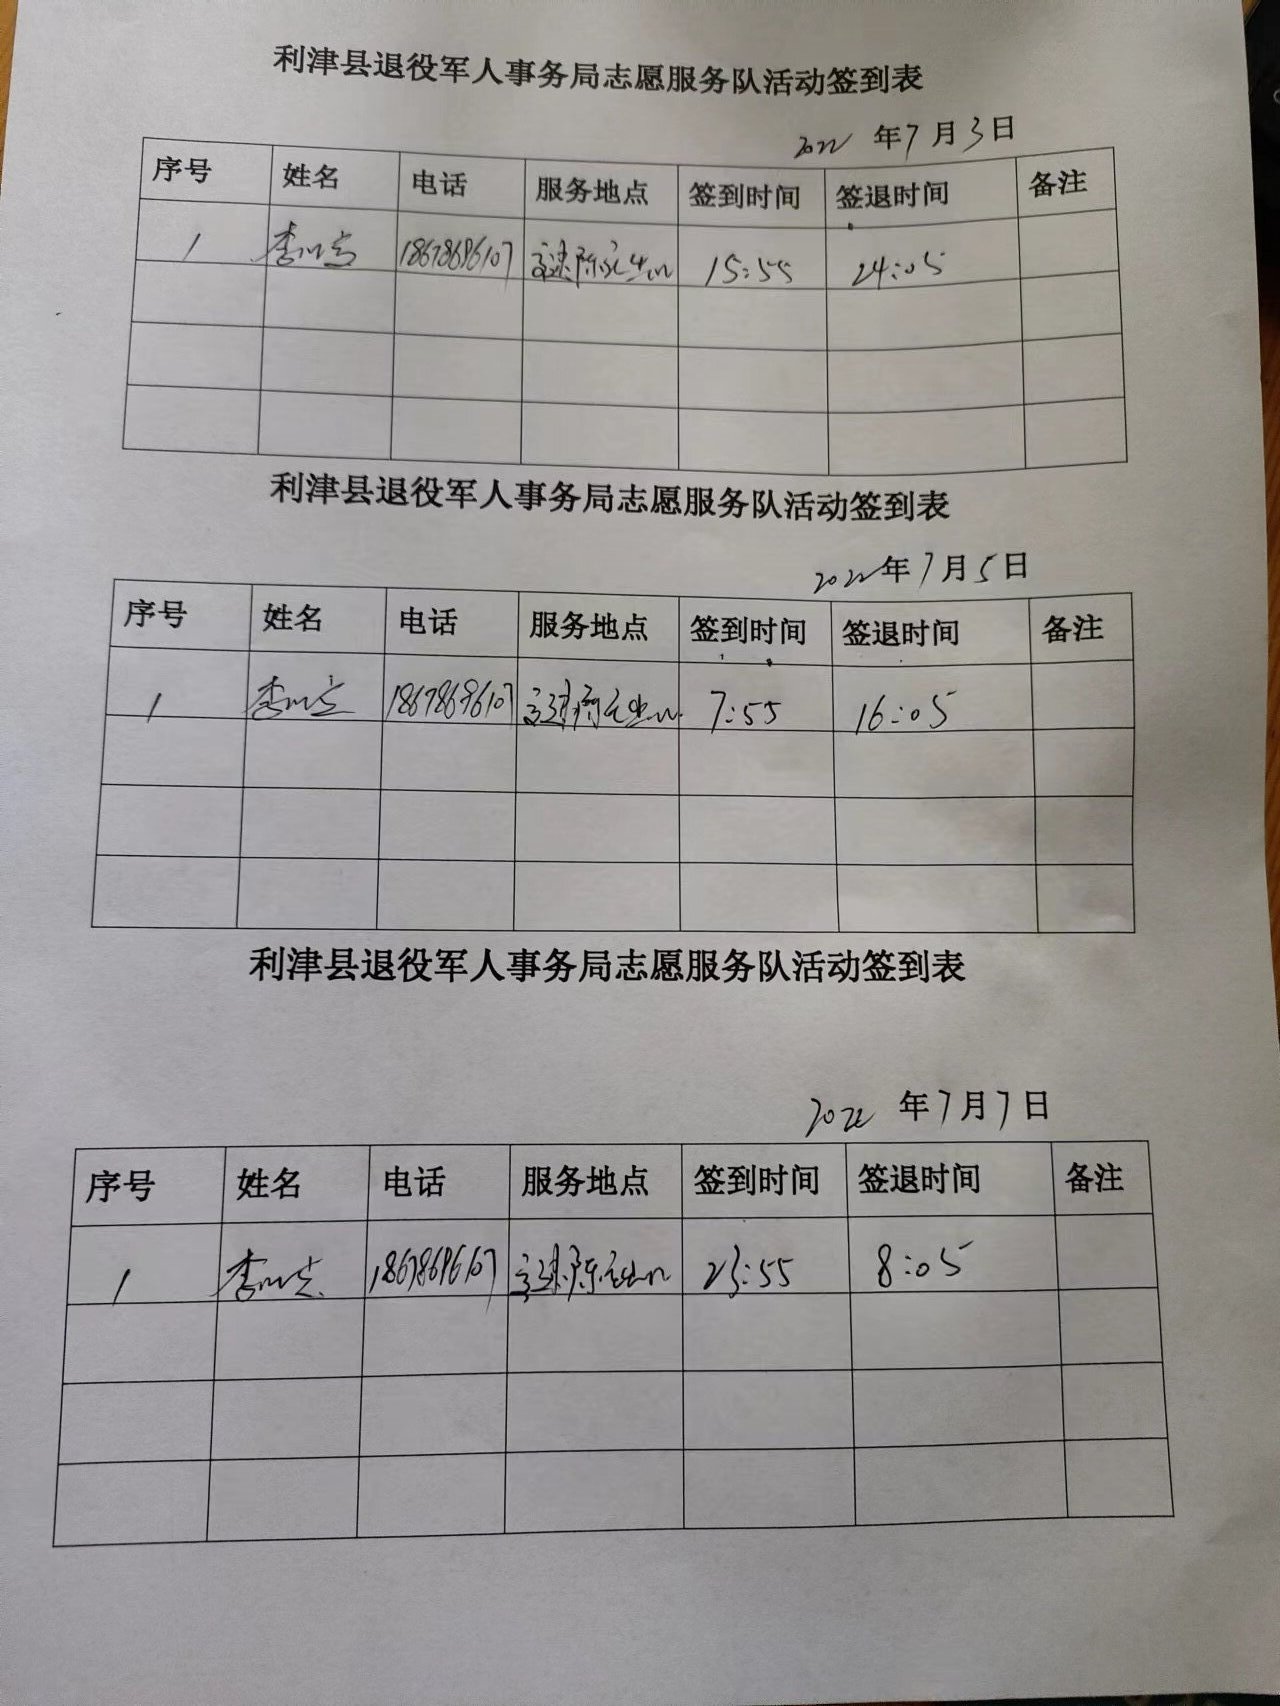 利津县退役军人事务局志愿服务队活动签到表
2022 年7月3日
序号 姓名 电话 服务地点 签到时间 签退时间 备注
1 李 18678696107 15:55 24:05
利津县退役军人事务局志愿服务队活动签到表
2022年7月5日
序号 姓名 电话 服务地点 签到时间 签退时间 备注
1 李 18678696107 7:55 16:05
利津县退役军人事务局志愿服务队活动签到表
2022 年7月7日
序号 姓名 电话 服务地点 签到时间 签退时间 备注
1 李 18678696107 23:55 8:05